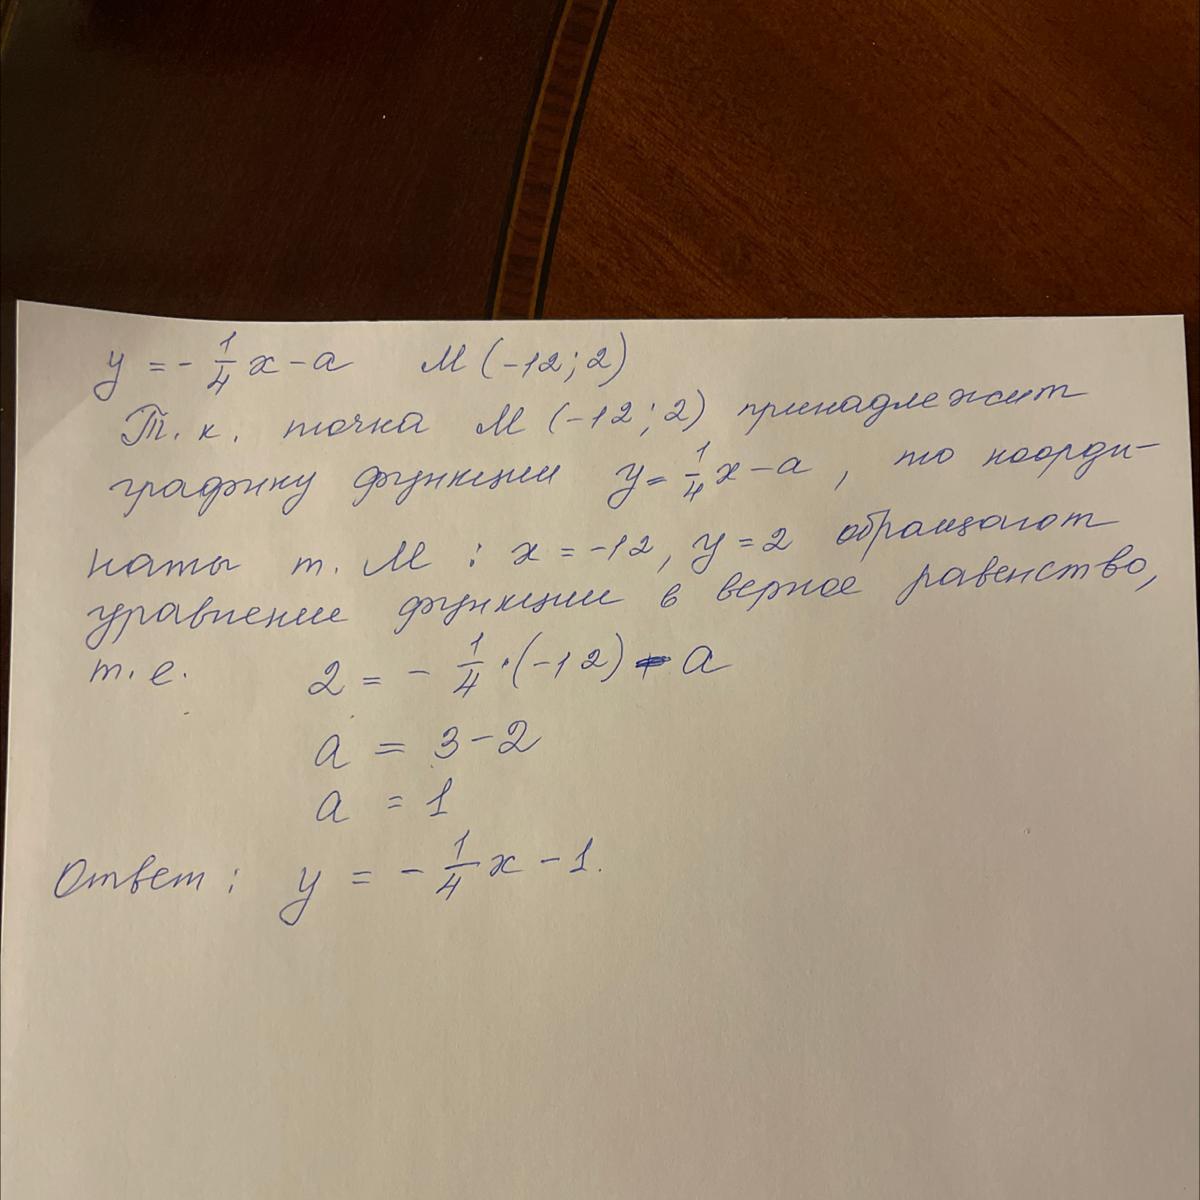 y = - 1/4 x - a M (-12; 2)
Т. к. точка M (-12; 2) принадлежит
графику функции y = 1/4 x - a, то коорди-
наты т. M : x = -12, y = 2 обращают
уравнение функции в верное равенство,
т. е. 2 = - 1/4 · (-12) - a
a = 3 - 2
a = 1
Ответ: y = - 1/4 x - 1.